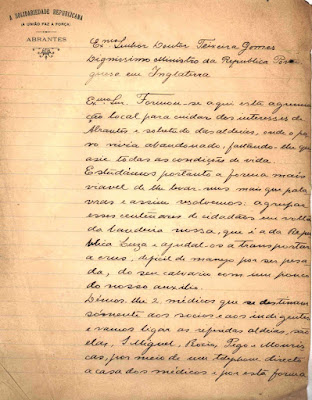 A SOLIDARIEDADE REPUBLICANA
(A UNIÃO FAZ A FORÇA)
ABRANTES
Exmo Senhor Doutor Teixeira Gomes
Dignissimo Ministro da Republica
em Inglaterra
Exmo Snr. Formou-se aqui esta agremia
ção local para cuidar dos interesses de
Abrantes e sobretudo das aldeias, onde o po
vo vivia abandonado, faltando-lhe qua
si todas as condições de vida
Estudámos portanto a forma mais
viavel de lhe levar mais que pala
vras e assim resolvemos: agrupar
esses centenares de cidadãos em volta
da bandeira nossa, que é a da Re
publica Luza e ajudal-os a transportar
a cruz, dificil de manejo por ser pesa
da, do seu calvario com um pouco
do nosso auxilio.
Démos-lhe 2 médicos que se destinam
sómente aos socios e aos indigentes
e vamos ligar as referidas aldeias, são
elas, S. Miguel, Rocio, Pego e Mouris
cas, por meio de um telephone directo
a casa dos médicos e por esta forma